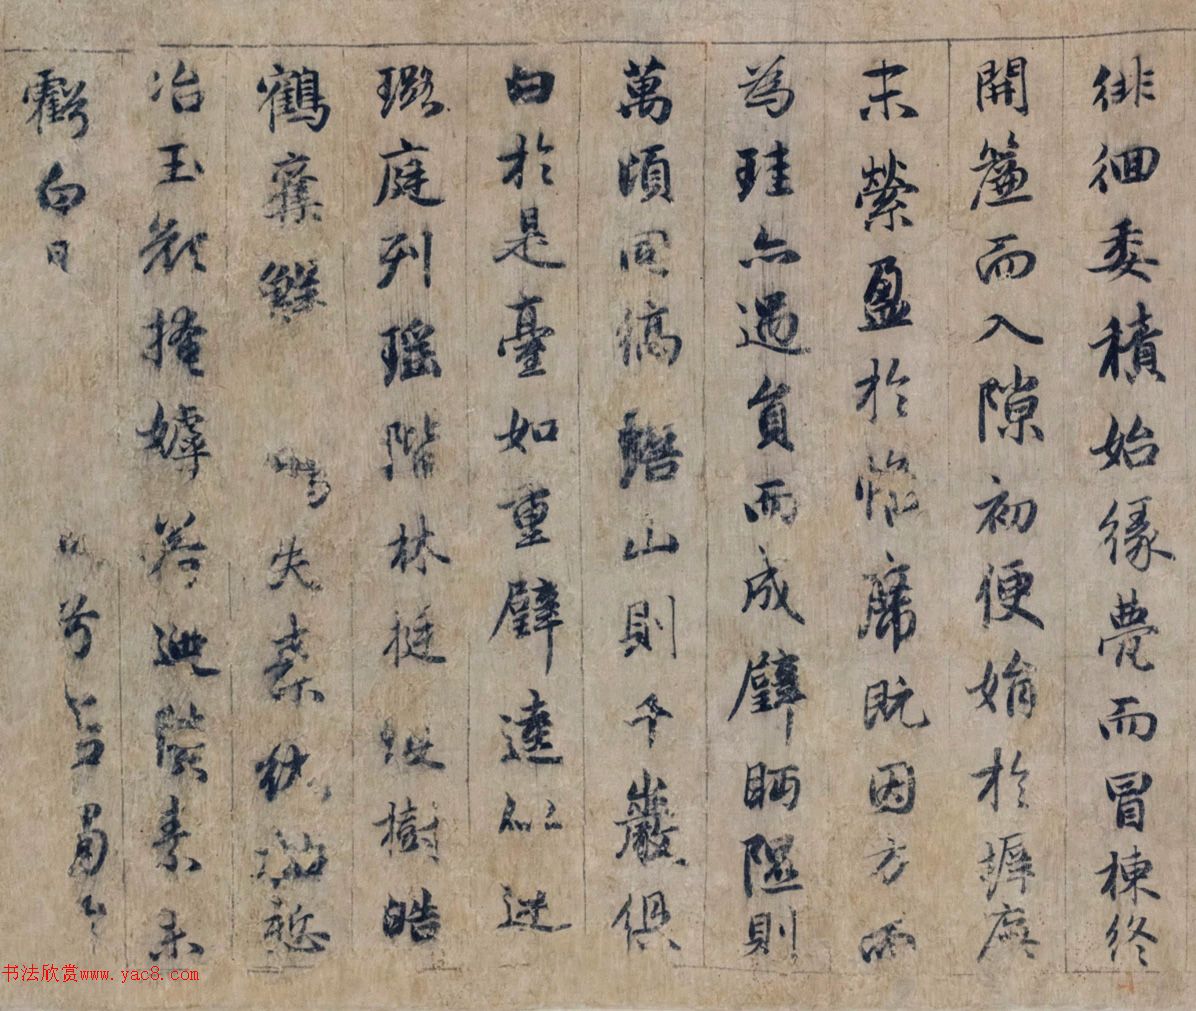 徘徊委積始緣甍而冒棟終
開簾而入隙初便娟於墀廡
末縈盈於帷席既因方而
為珪亦遇員而成璧眄隰則
萬頃同縞瞻山則千巖俱
白於是臺如重璧逵似連
璐庭列瑶階林挺瓊樹皓
鶴奪鮮失素紈袖慙
冶玉顏掩嫮若迆積素未
虧白日兮若
书法欣赏www.yac8.com